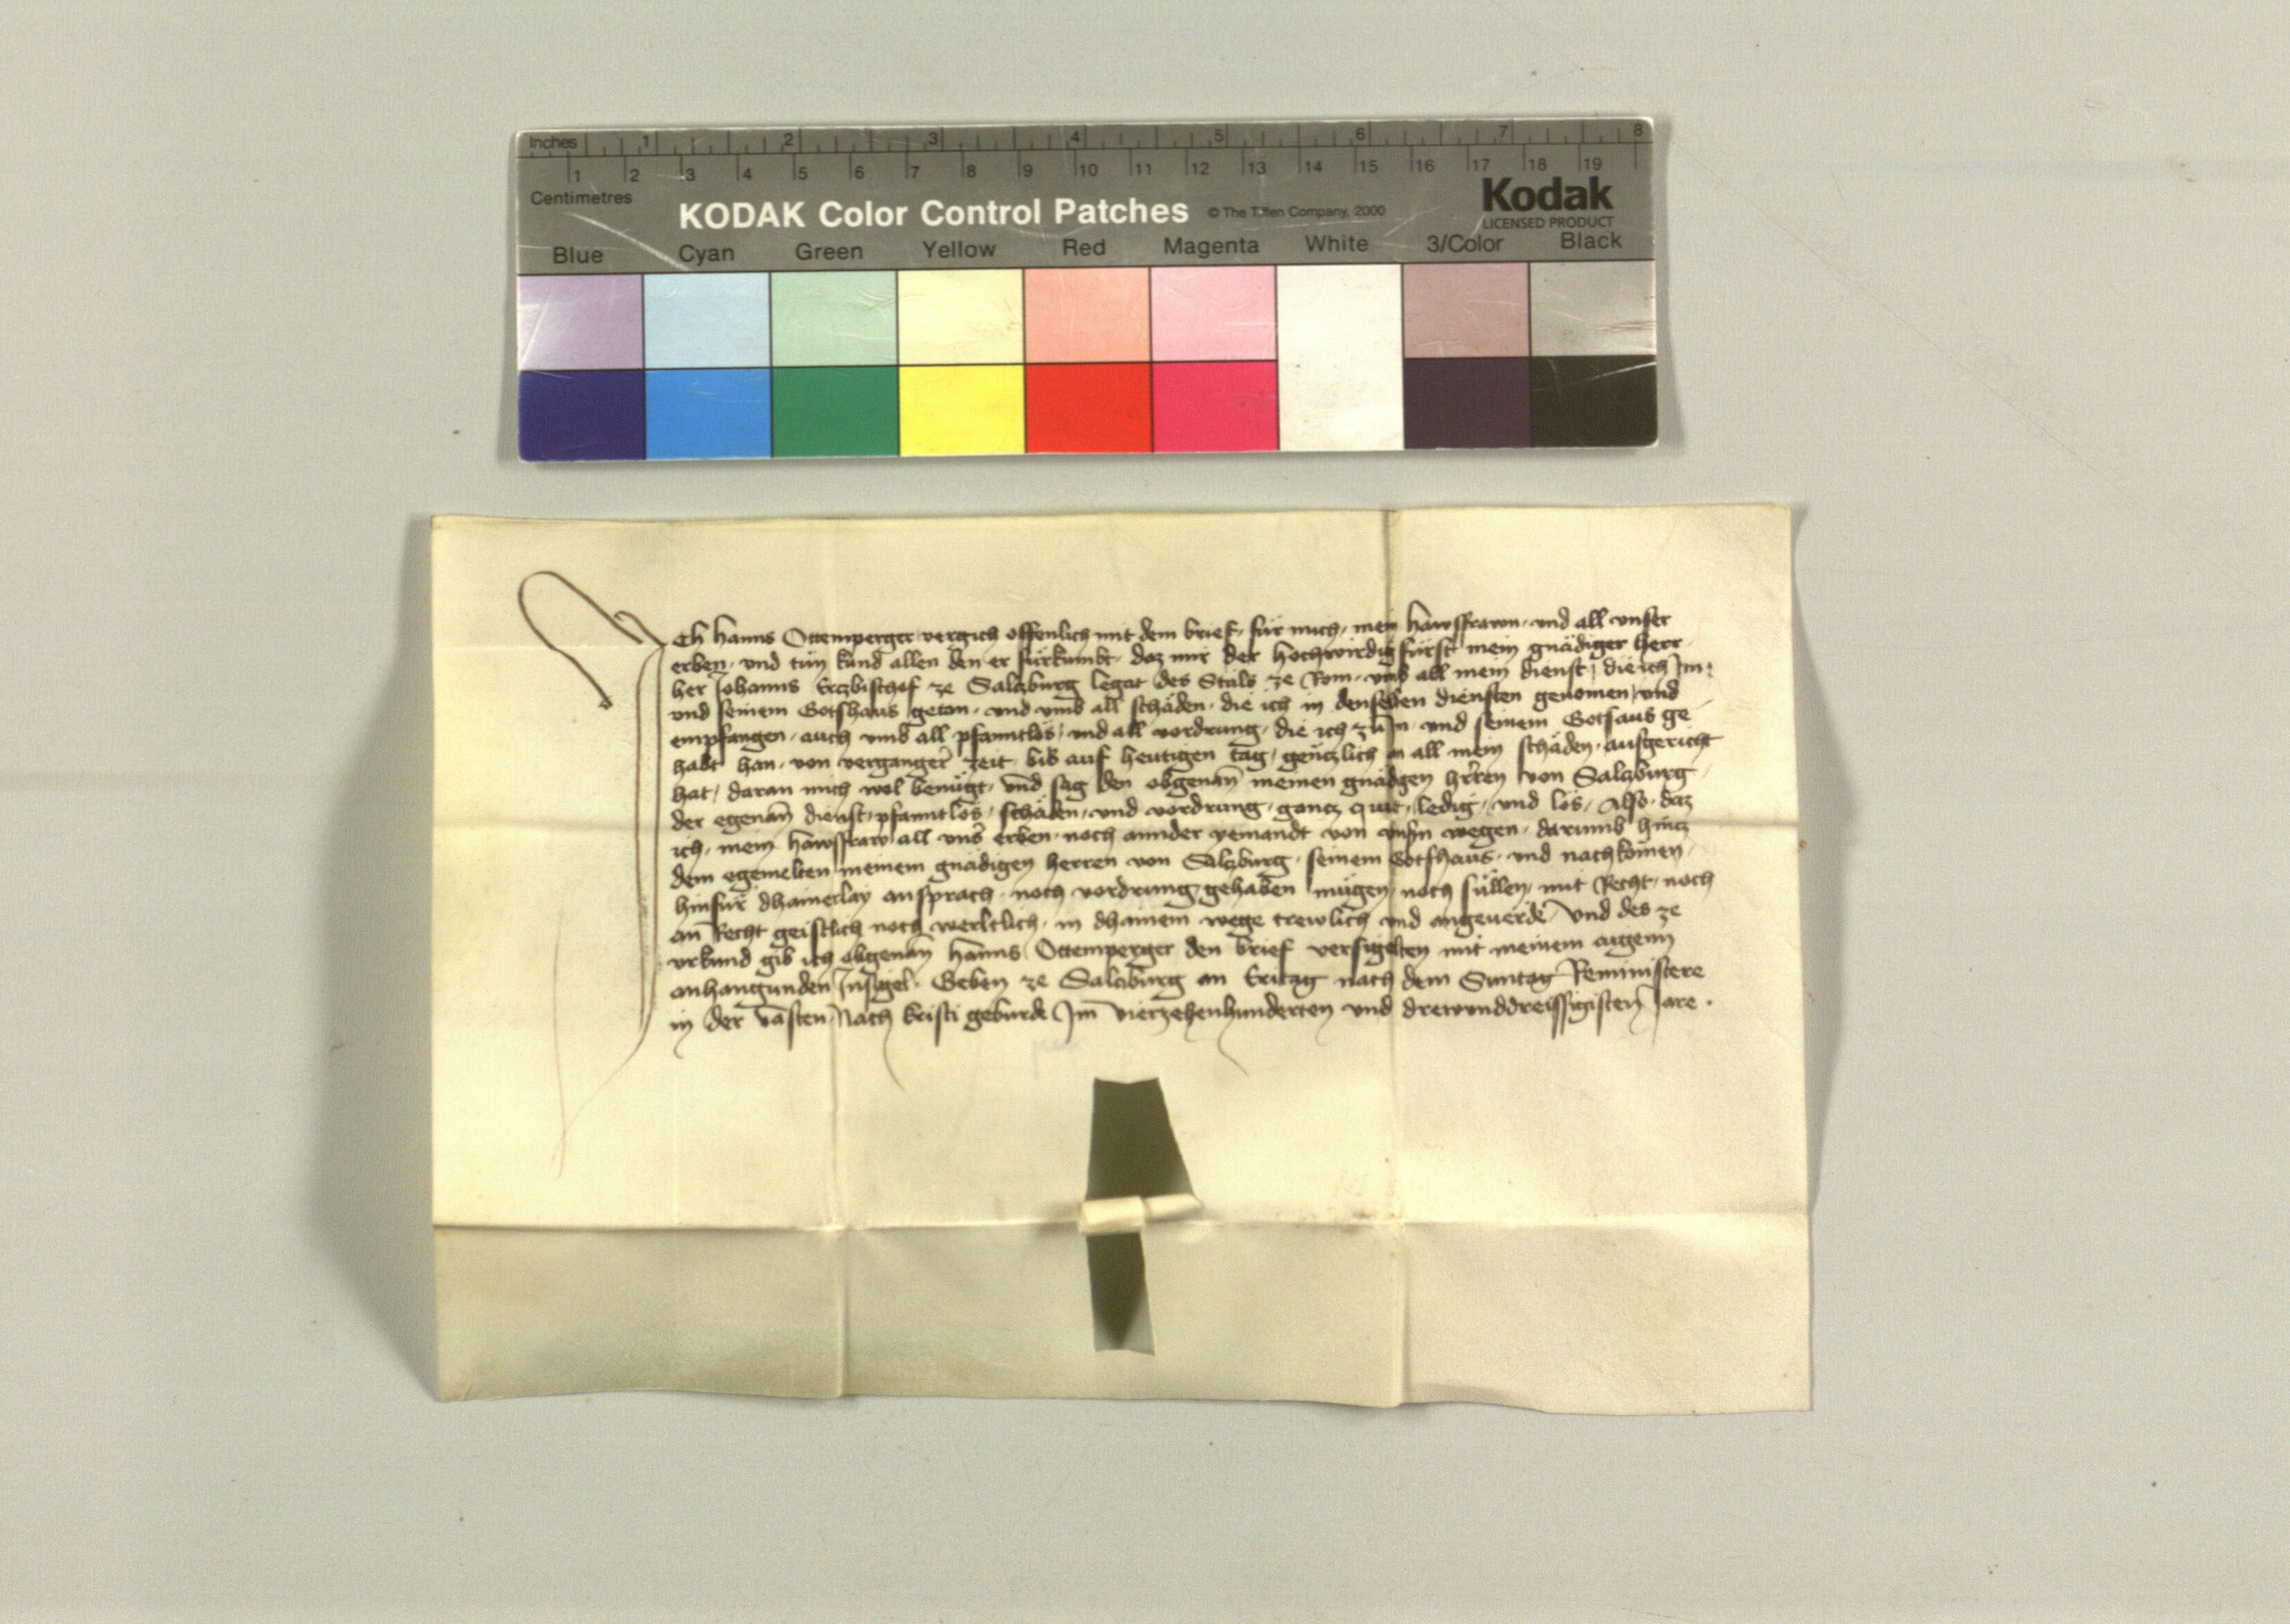 Inches 1 2 3 4 5 6 7 8
1 2 3 4 5 6 7 8 9 10 11 12 13 14 15 16 17 18 19
Centimetres
KODAK Color Control Patches © The Tiffen Company, 2000 Kodak
LICENSED PRODUCT
Blue Cyan Green Yellow Red Magenta White 3/Color Black
Ich Hanns Ottemperger vergich offenlich mit dem brief, für mich, mein hawsfrawn, und all unser
erben, und tün kund allen den er fürkumbt, daz mir der hochwirdig fürst mein gnädiger herr
her Johanns Erczbischof ze Salczburg legat des Stůls ze Rom, umb all mein dienst, die ich Im,
und seinem Gotshaus getan, und umb all schäden, die ich in denselben diensten genomen, und
empfangen, auch umb all pfanntlös, und all vordrung, die ich zu Im, und seinem Gotsaus ge
habt han, von verganger zeit bis auf heutigen tag, genczlich an all mein schäden, ausgericht
hat, daran mich wol benügt, und sag den obgenan̄ meinen gnädgen hr̄ren von Salczburg
der egenan̄ dienst, pfanntlös, schäden, und vordrung, gancz quit, ledig, und los, Also, daz
ich, mein hawsfraw all uns̄ erben, noch annder yemandt von uns̄n wegen, darumb hincz
dem egemelten meinem gnädigen herren von Salczburg, seinem Gotshaus, und nachkomen,
hinfür dhainerlay ansprach, noch vordrung gehaben mügen, noch süllen, mit Recht, noch
an̄ Recht geistlich noch werltlich, in dhainem wege trewlich und angeuerde, Und des ze
urkund gib ich obgenan̄ Hanns Ottemperger den brief versigelten mit meinem aigenn
anhangunden Insigel, Geben ze Salczburg an Eritag nach dem Suntag Reministere
in der Vasten, Nach kristi geburde Im Vierzehenhunderten und drewunddreissigisten Jare.